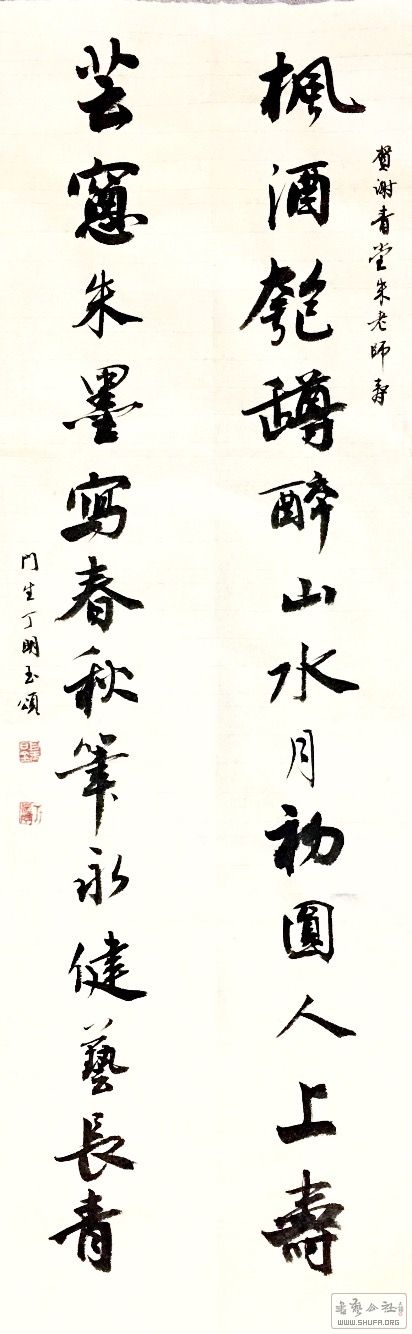 賀謝青堂朱老師壽
楓酒匏罇醉山水月初圓人上壽
芸窻朱墨寫春秋筆永健藝長青
門生丁明玉頌
書藝公社
WWW.SHUFA.ORG